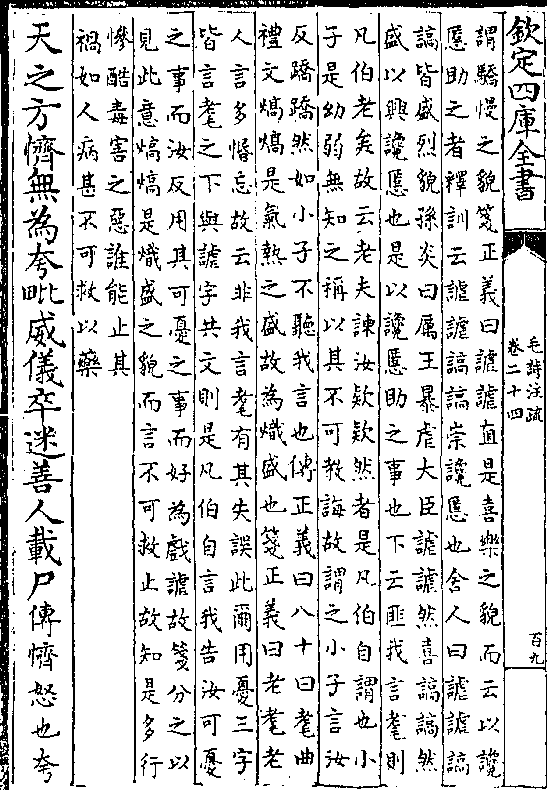 欽定四庫全書
毛詩注疏
卷二十四
百九
謂驕慢之貌箋正義曰謔謔直是喜樂之貌而云以讒
慝助之者釋訓云謔謔謞謞崇讒慝也舍人曰謔謔謞
謞皆盛烈貌孫炎曰厲王暴虐大臣謔謔然喜謞謞然
盛以興讒慝也是以讒慝助之事也下云匪我言耄則
凡伯老矣故云老夫諫汝欵欵然者是凡伯自謂也小
子是幼弱無知之稱以其不可教誨故謂之小子言汝
反蹻蹻然如小子不聽我言也傳正義曰八十曰耄曲
禮文熇熇是氣熱之盛故為熾盛也箋正義曰老耄老
人言多惛忘故云非我言耄有其失誤此爾用憂三字
皆言耄之下與謔字共文則是凡伯自言我告汝可憂
之事而汝反用其可憂之事而好為戲謔故箋分之以
見此意熇熇是熾盛之貌而言不可救止故知是多行
慘酷毒害之惡誰能止其
禍如人病甚不可救以藥
天之方懠無為夸毗威儀卒迷善人載尸傳懠怒也夸